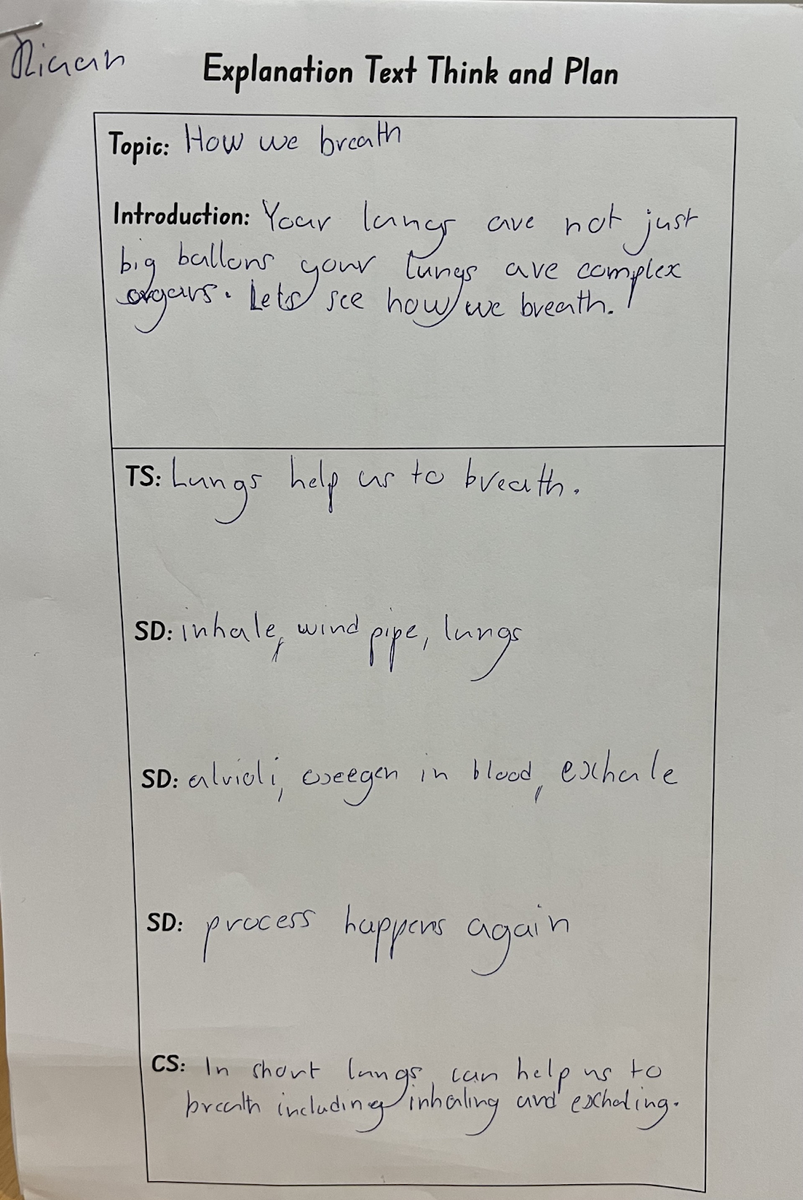 Explanation Text Think and Plan
Topic: How we breath
Introduction: Your lungs are not just
big ballons your lungs are complex
organs. Lets see how we breath.
TS: Lungs help us to breath.
SD: inhale, wind pipe, lungs
SD: alvioli, oxeegen in blood, exhale
SD: process happens again
CS: In short lungs can help us to
breath including inhaling and exhaling.